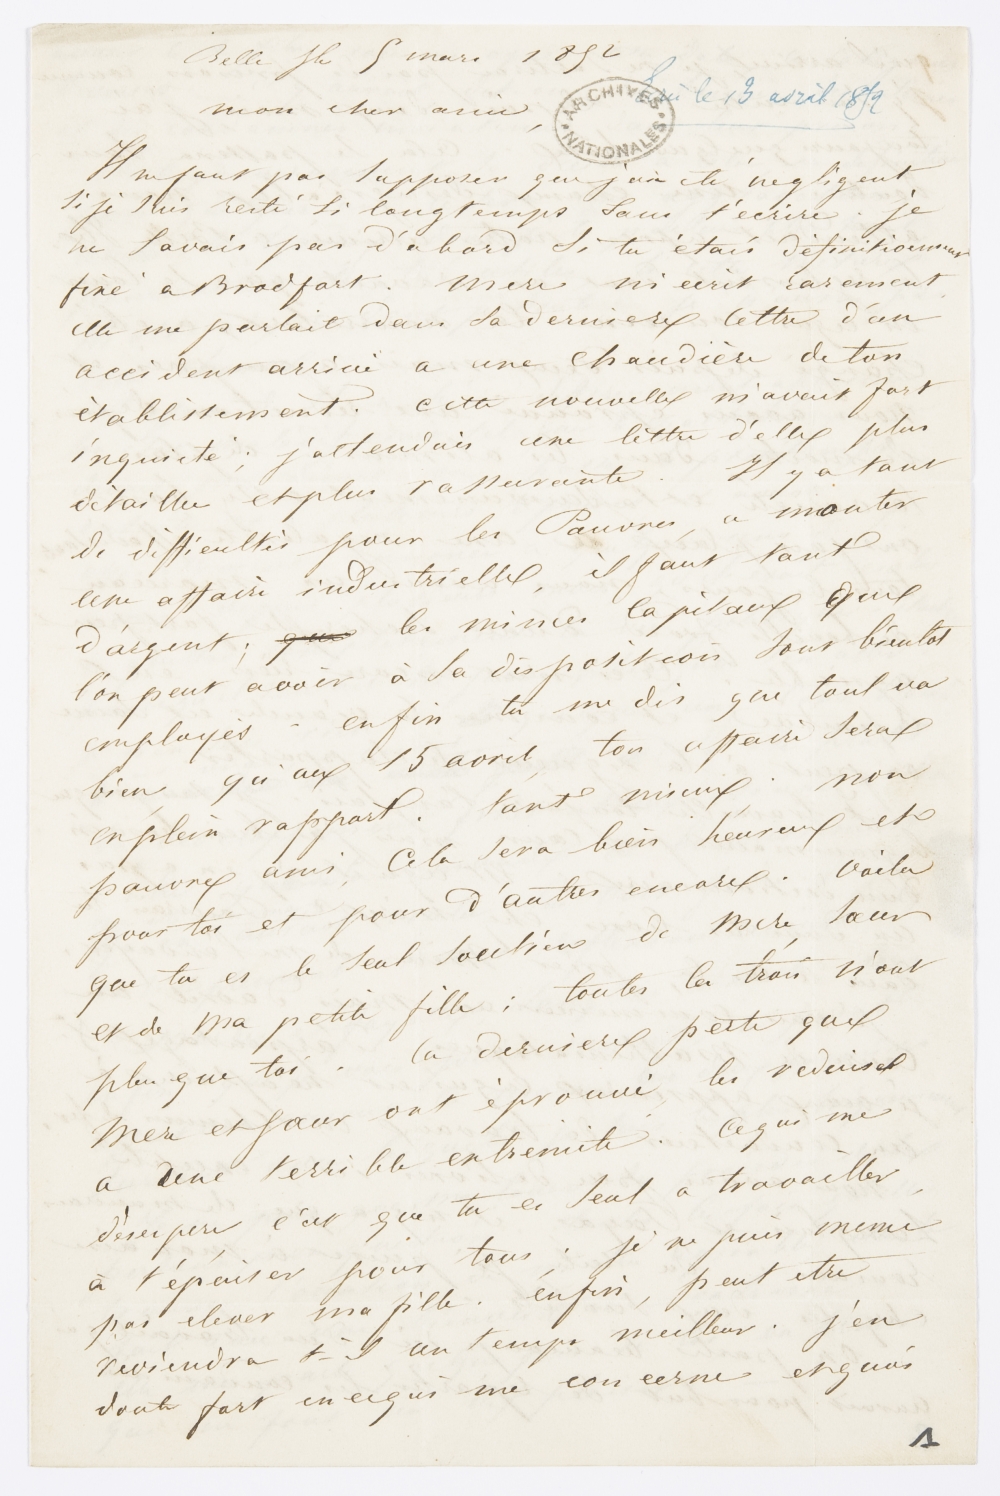 Belle Ile 5 mars 1852
Lu le 13 avril 1852
ARCHIVES NATIONALES
mon cher ami,
Il ne faut pas supposer que j'ai été négligent
si je suis resté si longtemps sans t'écrire. je
ne savais pas d'abord si tu étais définitivement
fixé a Bradfort. Mere m'écrit rarement
elle me parlait dans sa derniere lettre d'un
accident arrivé a une chaudière de ton
établissement. cette nouvelle m'avait fort
inquiété; j'attendais une lettre d'elle plus
détaillée et plus rassurante. Il y a tant
de difficultés pour les Pauvres, a monter
une affaire industrielle, il faut tant
d'argent; que les minces capitaux que
l'on peut avoir à sa disposition sont bientot
employés - enfin tu me dis que tout va
bien, qu'aux 15 avril, ton affaire sera
en plein rapport. tant mieux, mon
pauvre ami, cela sera bien heureux et
pour toi et pour d'autres encore. voila
que tu es le seul soutien de Mere, soeur
et de ma petite fille; toutes les trois n'ont
plus que toi. la derniere perte que
Mere et soeur ont éprouvé, les reduisit
a une terrible extremité. ce qui me
désespere c'est que tu es seul a travailler,
à t'épuiser pour tous; je ne puis meme
pas elever ma fille. enfin, peut etre
reviendra t-il un temps meilleur. j'en
doute fort en ce qui me concerne et puis
1